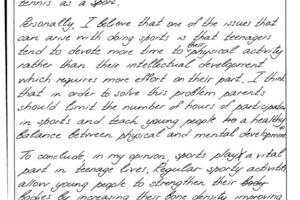 tennis as a sport.
Personally, I believe that one of the issues that
can arise with doing sports is that teenagers
tend to devote more time to their physical activity
rather than their intellectual development
which requires more effort on their part. I think
that in order to solve this problem parents
should limit the number of hours of participation
in sports and teach young people to a healthy
balance between physical and mental development
To conclude, in my opinion, sports play a vital
part in teenage lives. Regular sporty activities
allow young people to strengthen their body
bodies by increasing their bone density, improving